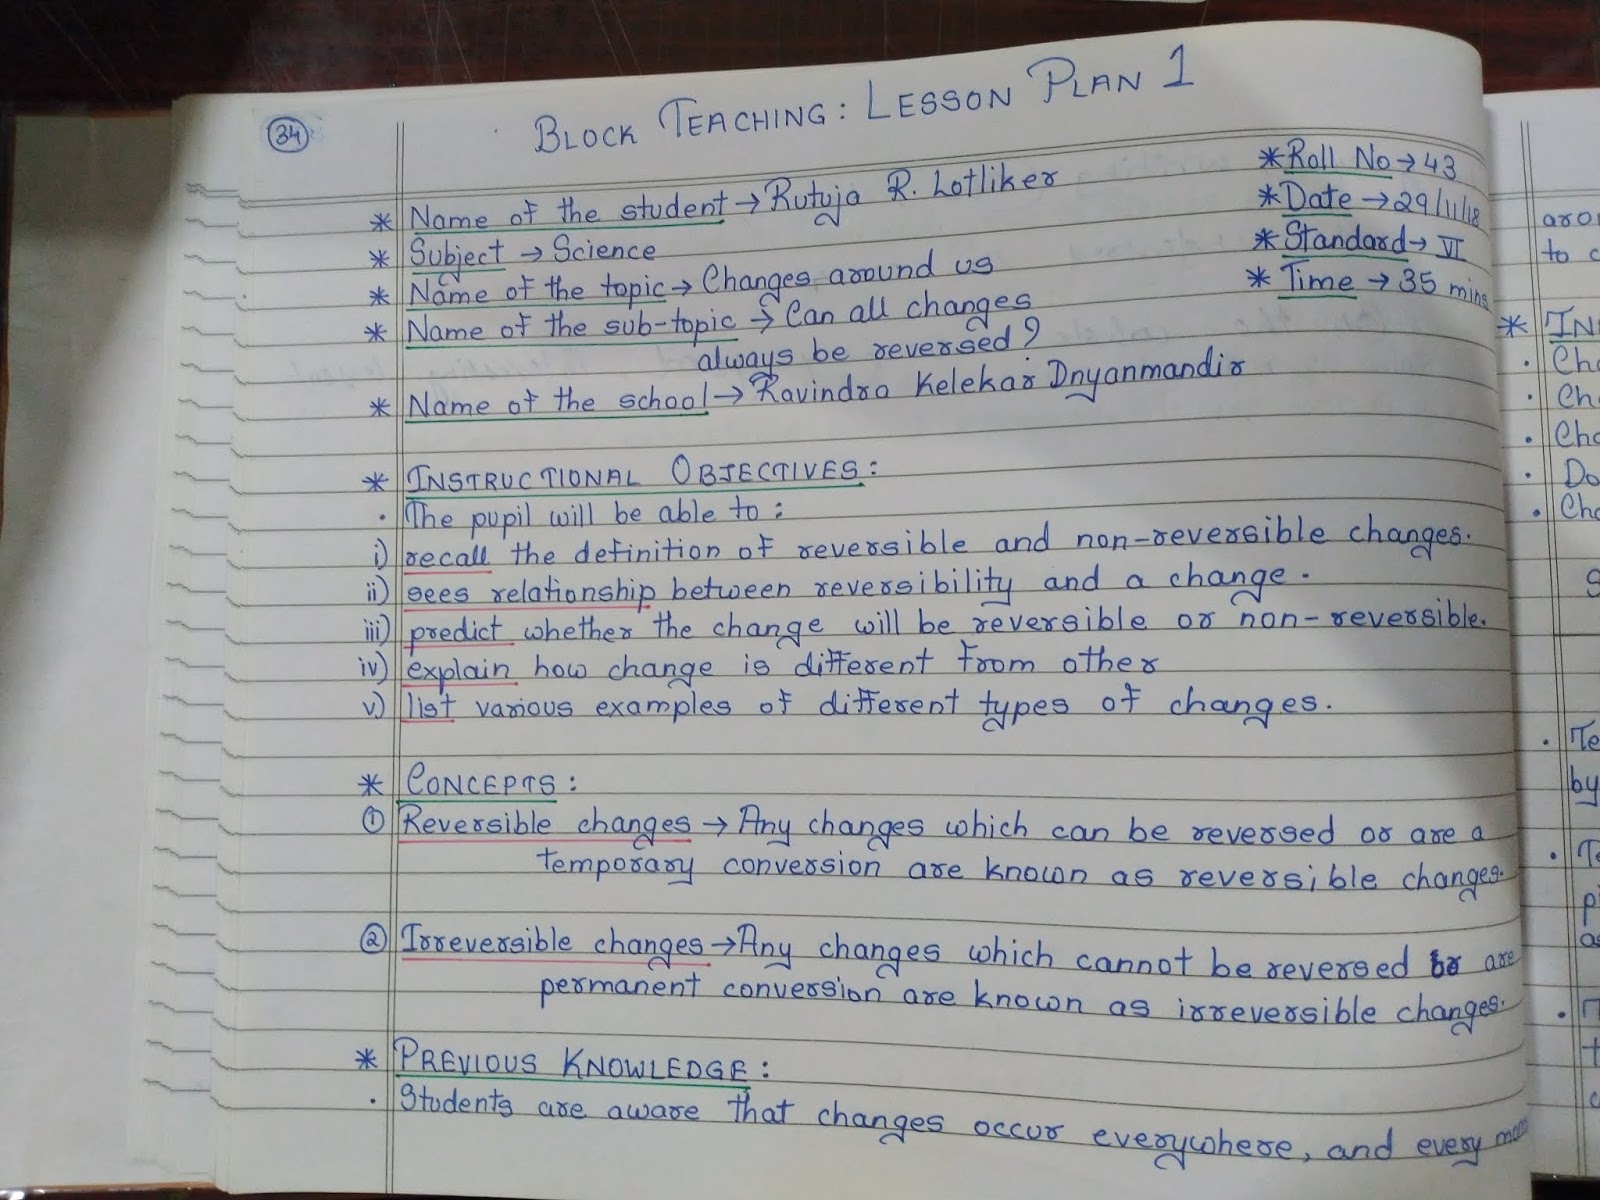 34
BLOCK TEACHING: LESSON PLAN 1
* Name of the student → Rutuja R. Lotliker
* Subject → Science
* Name of the topic → Changes around us
* Name of the sub-topic → Can all changes
always be reversed?
* Name of the school → Ravindra Kelekar Dnyanmandir
* Roll No → 43
* Date → 29/11/18
* Standard → VI
* Time → 35 mins
* INSTRUCTIONAL OBJECTIVES:
· The pupil will be able to:
i) recall the definition of reversible and non-reversible changes.
ii) sees relationship between reversibility and a change.
iii) predict whether the change will be reversible or non-reversible.
iv) explain how change is different from other
v) list various examples of different types of changes.
* CONCEPTS:
① Reversible changes → Any changes which can be reversed or are a
temporary conversion are known as reversible changes.
② Irreversible changes → Any changes which cannot be reversed or are
permanent conversion are known as irreversible changes.
* PREVIOUS KNOWLEDGE:
· Students are aware that changes occur everywhere, and every
to
*
· Do
by